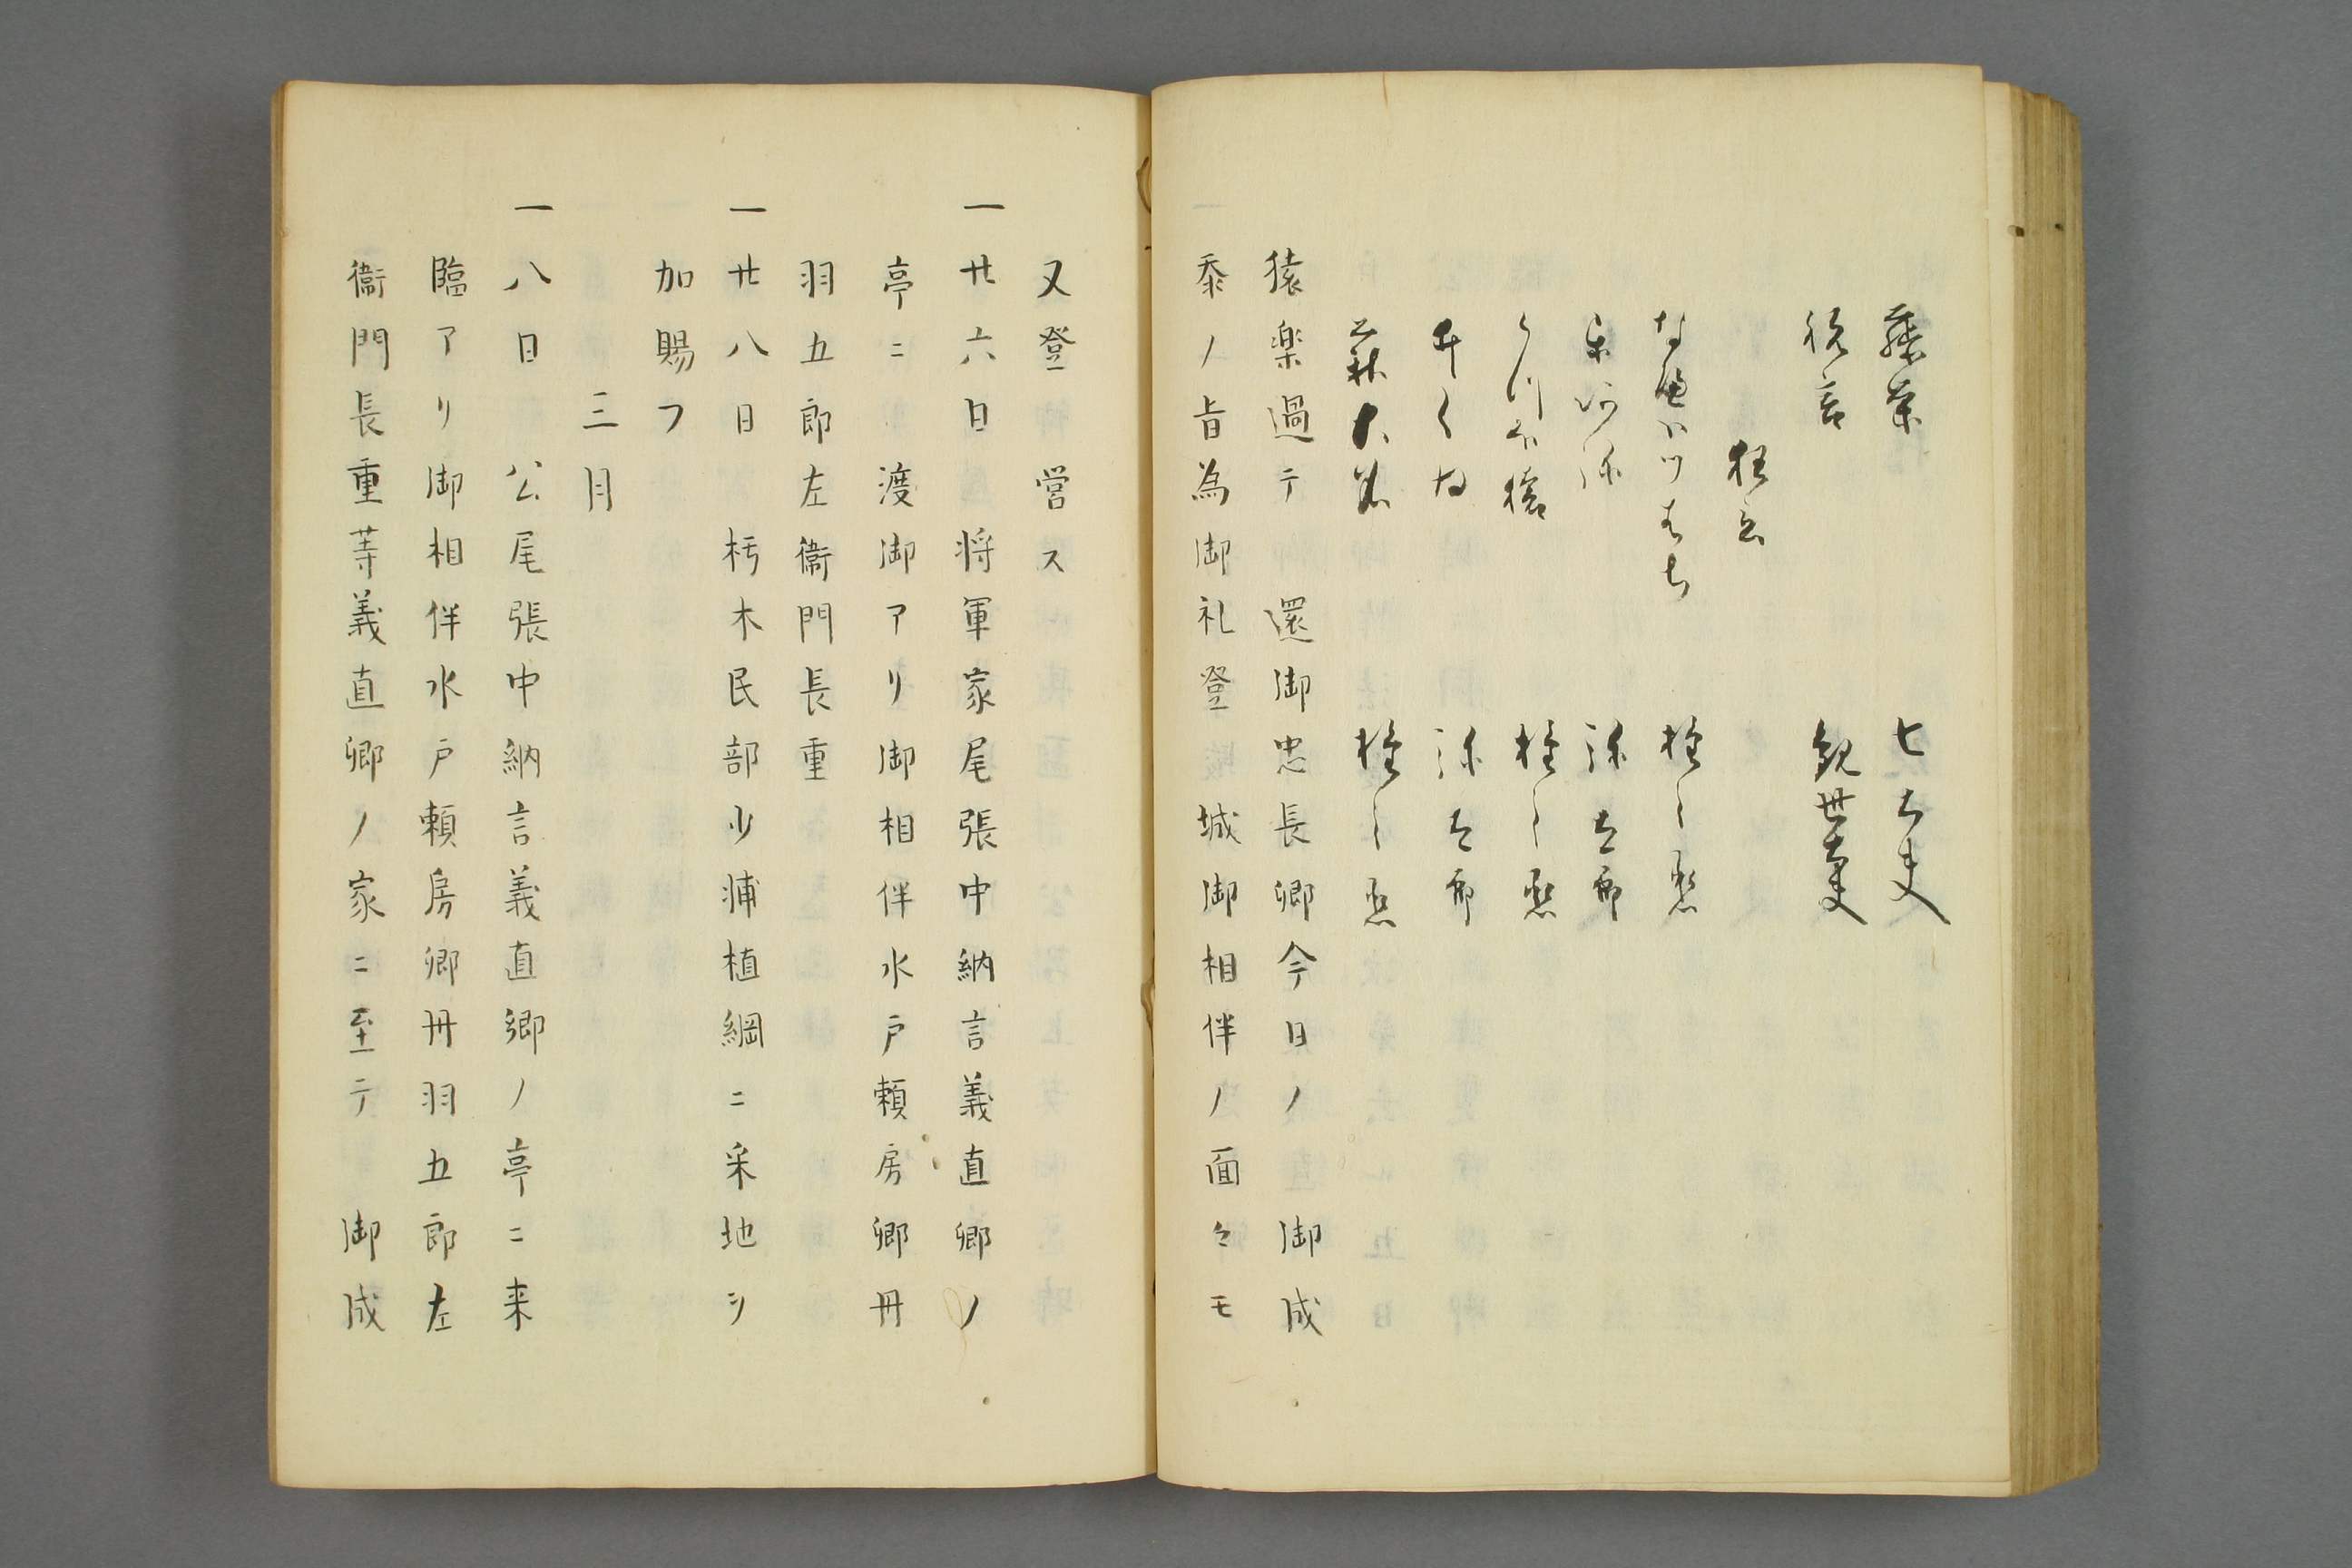 藤栄 七大夫
祝言 観世大夫
狂言
弥太郎
弥太郎
萩大名
猿楽過テ 還御忠長卿今日ノ 御成
忝ノ旨為御礼登 城御相伴ノ面々モ
又登 営ス
一廿六日 将軍家尾張中納言義直卿ノ
亭ニ 渡御アリ御相伴水戸頼房卿丹
羽五郎左衛門長重
一廿八日 朽木民部少輔植綱ニ采地ヲ
加賜フ
三月
一八日 公尾張中納言義直卿ノ亭ニ来
臨アリ御相伴水戸頼房卿丹羽五郎左
衛門長重等義直卿ノ家ニ至テ 御成